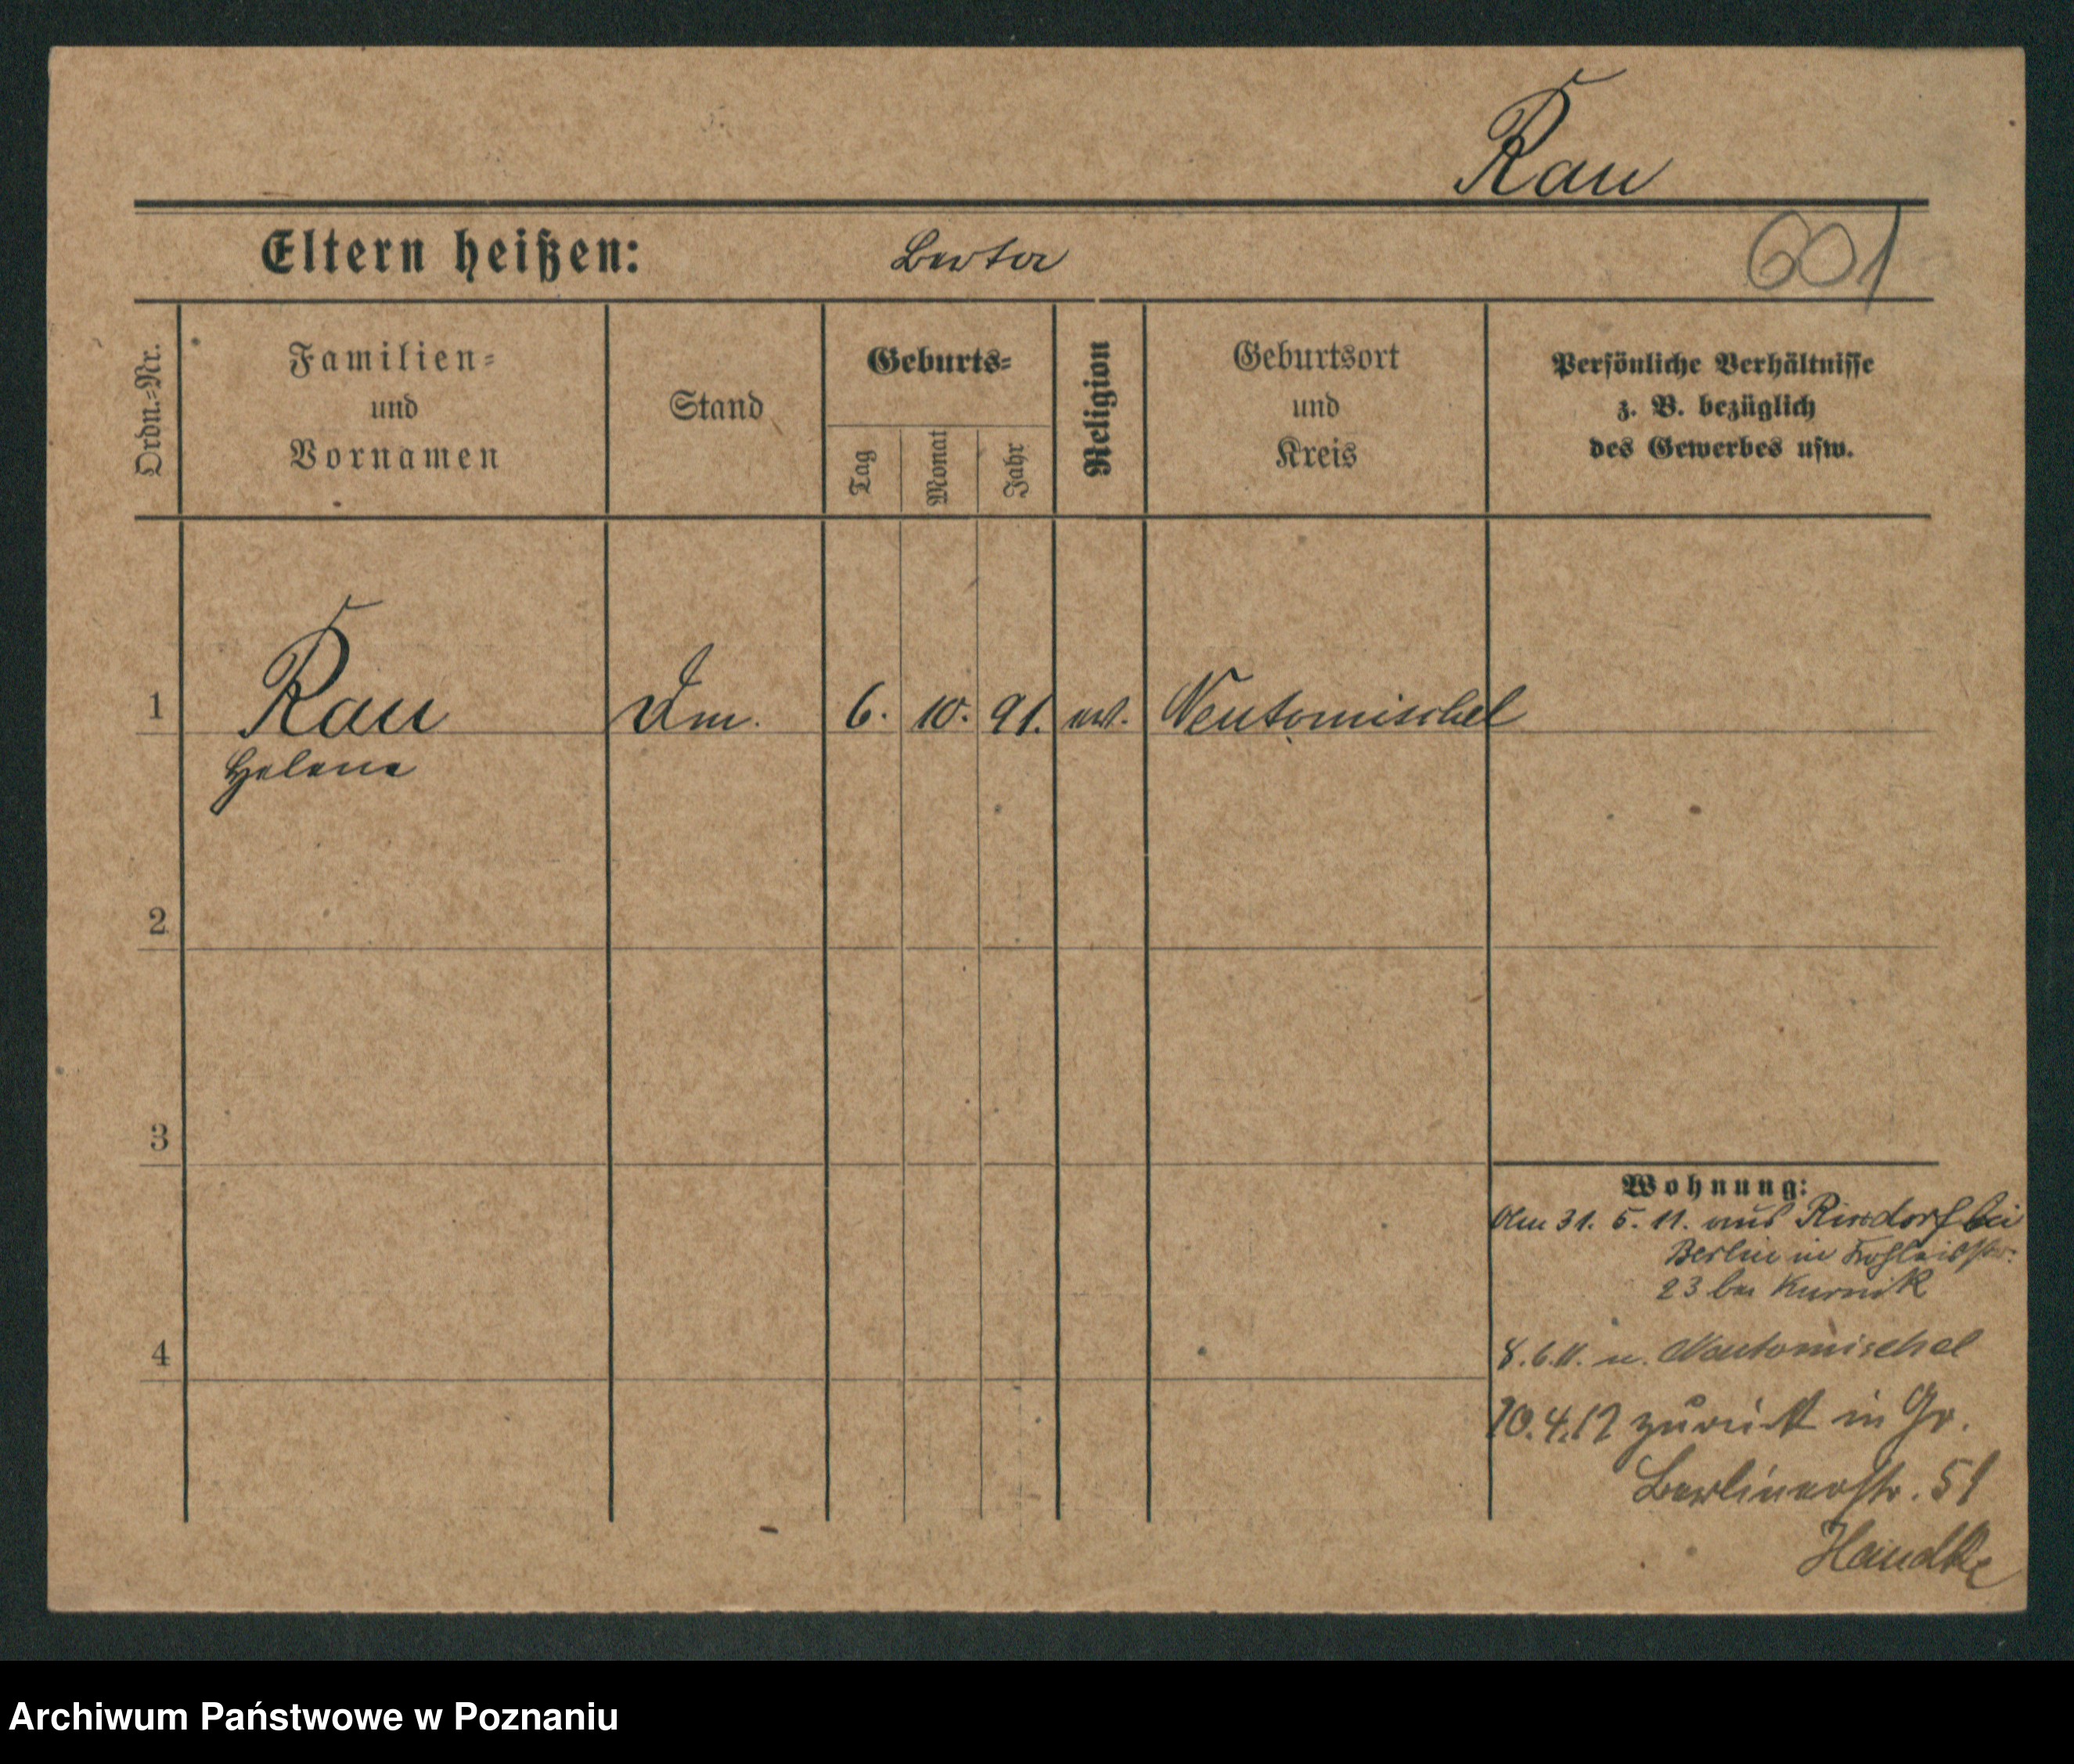 Rau
Eltern heißen: Berta
601
Ordn.-Nr.
Familien-
und
Vornamen
Stand
Geburts-
Tag
Monat
Jahr
Religion
Geburtsort
und
Kreis
Persönliche Verhältnisse
z. B. bezüglich
des Gewerbes usw.
1 Rau 6. 10. 91. ev. Neutomischel
Helene
2
3
4
Wohnung:
Am 31. 5. 11. aus Rixdorf bei
Berlin in
23 bei Kurnik
8.6.11. n. Neutomischel
10.4.12 zurück in Gr.
Berlinerstr. 51
Handke
Archiwum Państwowe w Poznaniu